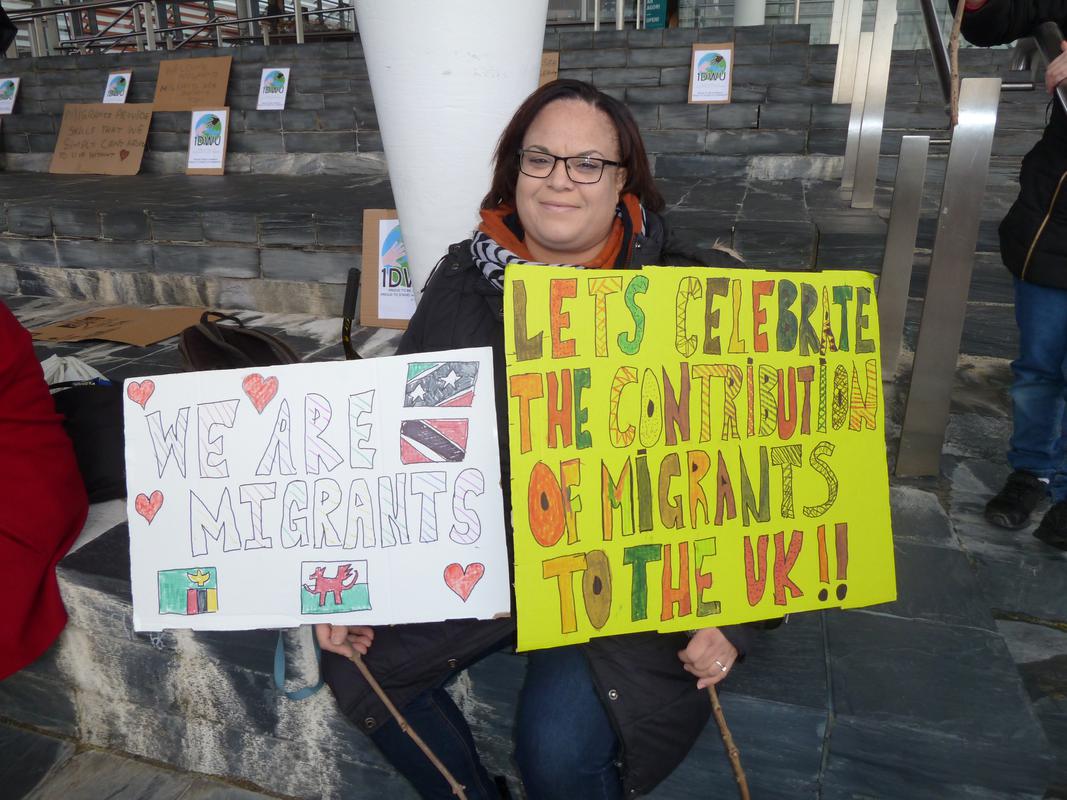 1DWU
1DWU
1DWU
1DWU
MIGRANTS PROVIDE
SKILLS THAT WE
SIMPLY CAN'T AFFORD
TO
1DW
WE ARE
MIGRANTS
LETS CELEBRATE
THE CONTRIBUTION
OF MIGRANTS
TO THE UK!!